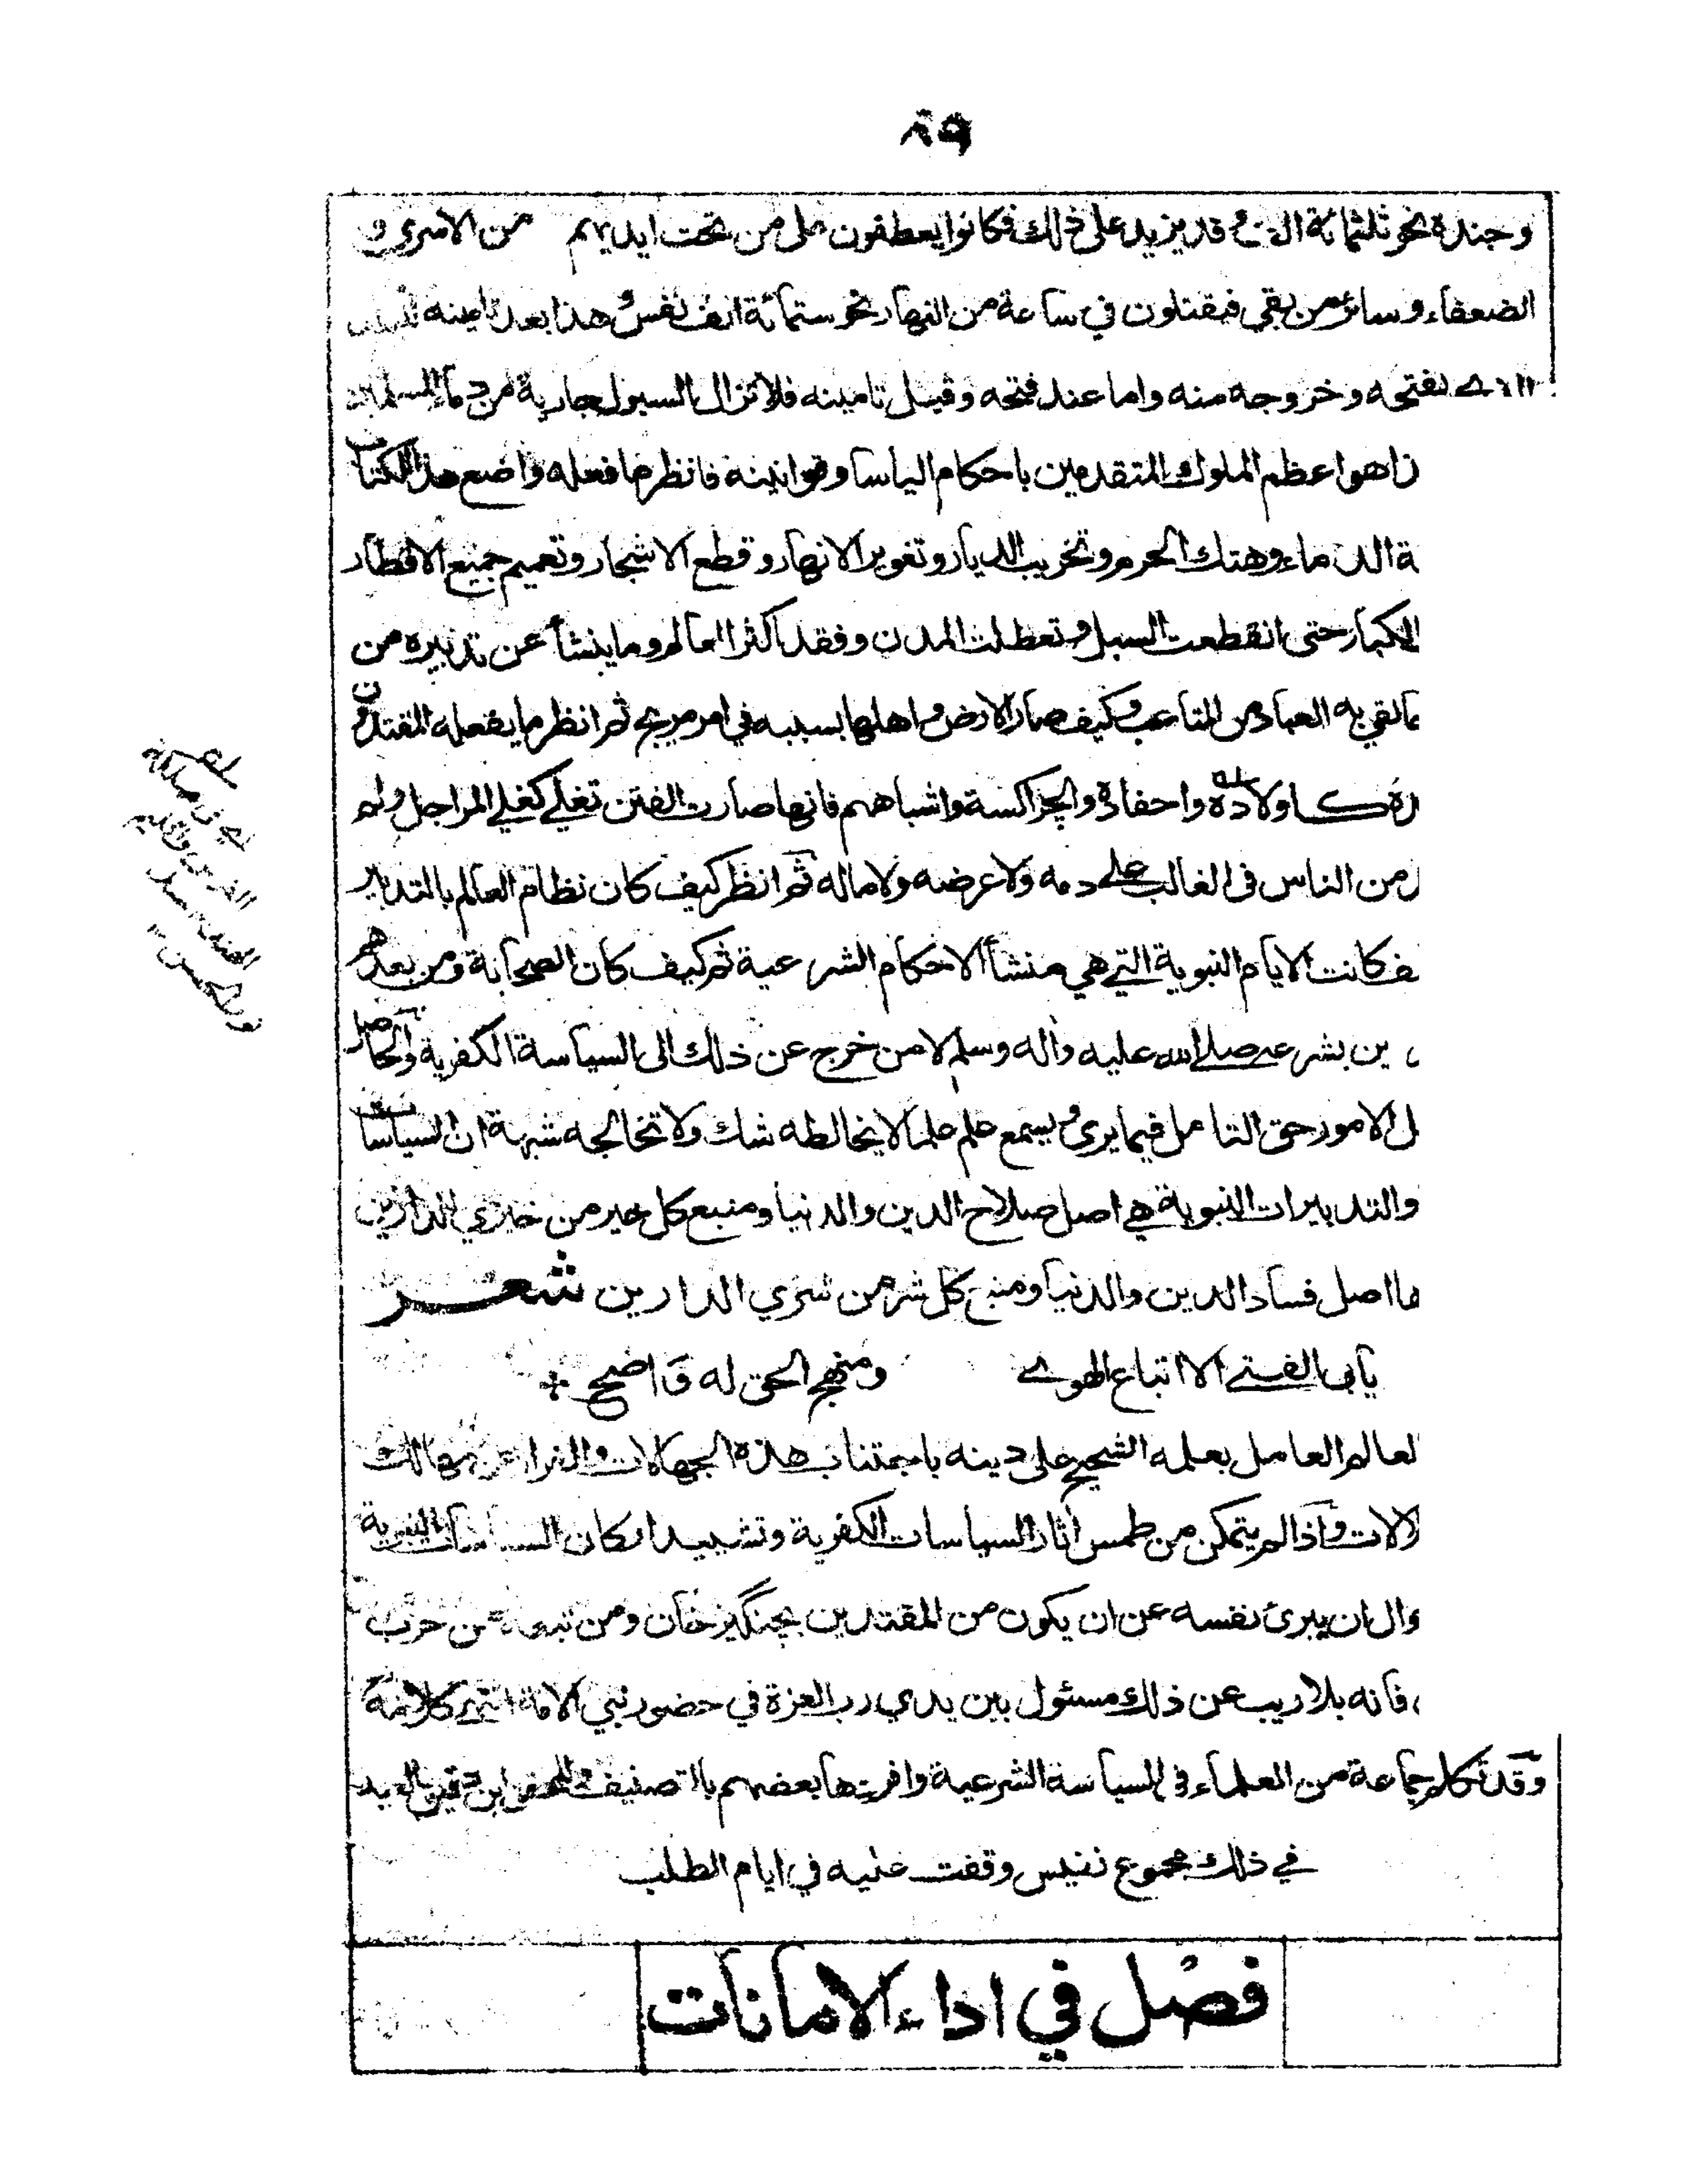 ٨٩
وجنده نحو ثلثمائة الف وقد يزيد على ذلك فكانوا يعطفون على من تحت ايديهم من الاسرى و
الضعفاء وسائر من بقي فيقتلون في ساعة من النهار نحو ستمائة الف نفس وهذا بعد تامينه
لفتحه وخروجه منه واما عند فتحه وقبل تامينه فلا تزال السيول جارية من دماء المسلمين
ذا هو اعظم الملوك المتقدمين باحكام الياسا وقوانينه فانظر ما فعله واضع هذا الكتاب
ة الدماء وهتك الحرم وتخريب الديار وتغوير الانهار وقطع الاشجار وتعميم جميع الاقطار
الكبار حتى انقطعت السبل وتعطلت المدن وفقد اكثر العالم وما ينشأ عن تدبيره من
مالقي به العباد من المتاعب وكيف صار الارض واهلها بسببه في امر مريج ثم انظر ما يفعله المقتدون
ره كاولاده واحفاده والجراكسة واشباههم فانها صارت الفتن تغلي كغلي المراجل ولم
من الناس في الغالب على دمه ولا عرضه ولا ماله ثم انظر كيف كان نظام العالم بالتدابير
ف كانت الايام النبوية التي هي منشأ الاحكام الشرعية ثم كيف كان الصحابة ومن بعدهم
ين بشرعه صلى الله عليه واله وسلم لا من خرج عن ذلك الى السياسة الكفرية والحاصل
ل الامور حق التامل فيما يرى ويسمع علم علما لا يخالطه شك ولا تخالجه شبهة ان السياسات
والتدبيرات النبوية هي اصل صلاح الدين والدنيا ومنبع كل خير من خيري الدارين
ها اصل فساد الدين والدنيا ومنبع كل شر من شري الدارين شعر
يابى الفتى الا اتباع الهوى ومنهج الحق له واضح
لعالم العامل بعلمه الشحيح على دينه باجتناب هذه الجهالات والفرار عن مهالك
لالات واذا لم يتمكن من طمس اثار السياسات الكفرية وتشييد اركان السياسات النبوية
وال ان يبرئ نفسه عن ان يكون من المقتدين بچنگيز خان ومن تبعه من حزب
فانه بلا ريب عن ذلك مسئول بين يدي رب العزة في حضور نبي الامة انتهى كلامه
وقد تكلم جماعة من العلماء في السياسة الشرعية وافردها بعضهم بالتصنيف ابن دقيق العيد
في ذلك مجموع نفيس وقفت عليه في ايام الطلب
فصل في اداء الامانات